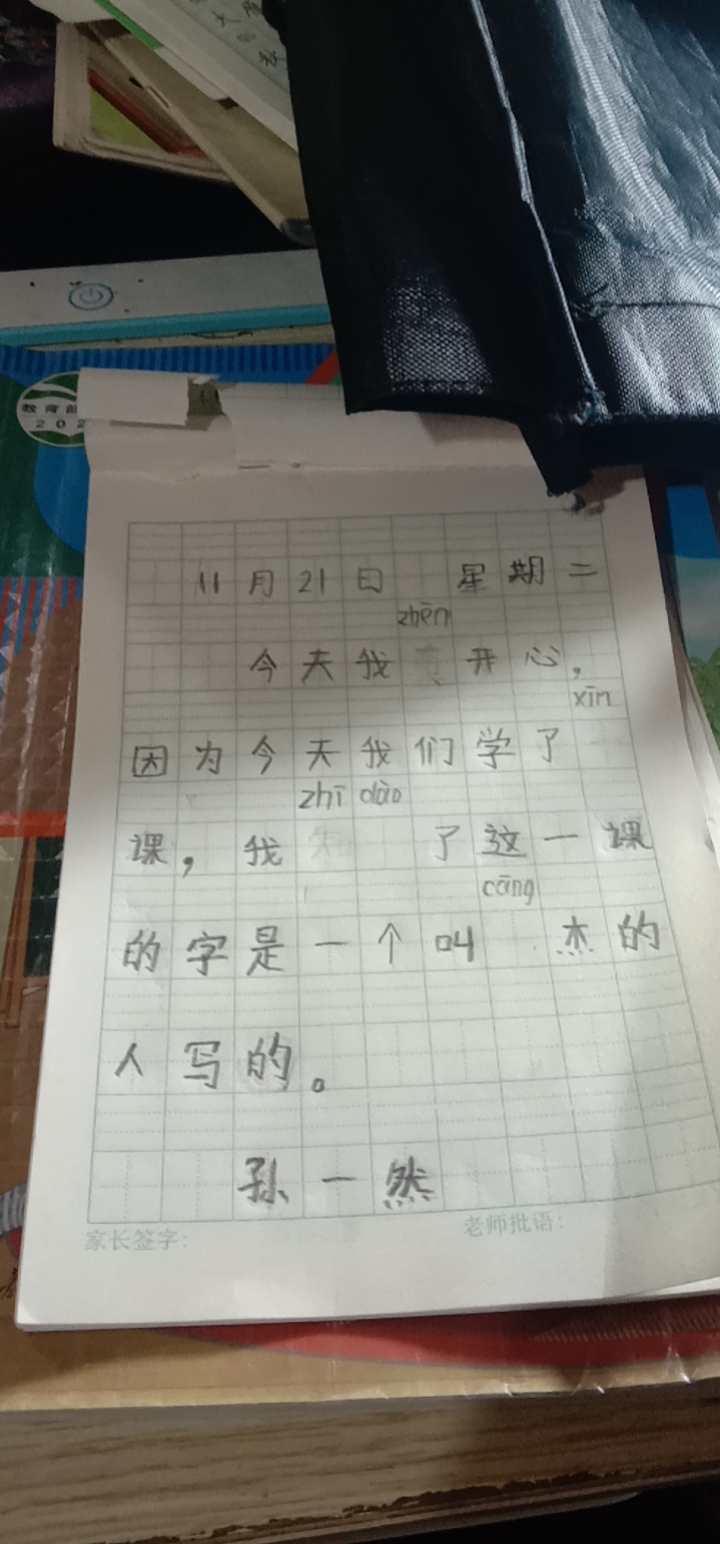 教育部
202
11月21日 星期二
zhēn
今天我 开心，
xīn
因为今天我们学了
zhī dào
课，我知 了这一课
cāng
的字是一个叫 杰的
人写的。
孙一然
家长签字：
老师批语：